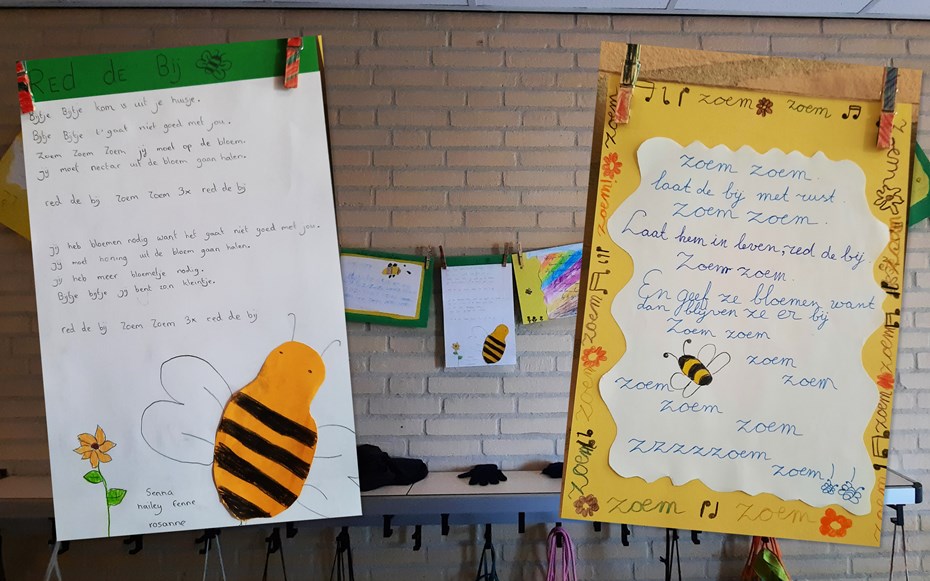 Red de Bij
Bijtje Bijtje kom is uit je huisje.
Bijtje Bijtje 't gaat niet goed met jou.
Zoem Zoem Zoem jij moet op de bloem.
jij moet nectar uit de bloem gaan halen.
red de bij Zoem Zoem 3x red de bij
jij heb bloemen nodig want het gaat niet goed met jou.
jij moet honing uit de bloem gaan halen.
jij heb meer bloemetje nodig.
Bijtje bijtje jij bent zon kleintje.
red de bij Zoem Zoem 3x red de bij
Senna
hailey fenne
rosanne
zoem zoem
zoem zoem.
laat de bij met rust.
zoem zoem.
Laat hem in leven, red de bij.
Zoem zoem.
En geef ze bloemen, want
dan blijven ze er bij
Zoem zoem
zoem
zoem
zoem
zoem
zoem
zzzzzzoem
zoem!
zoem zoem
zoem
zoem!
zoem
zoem
zoem
zoem
zoem
zoem